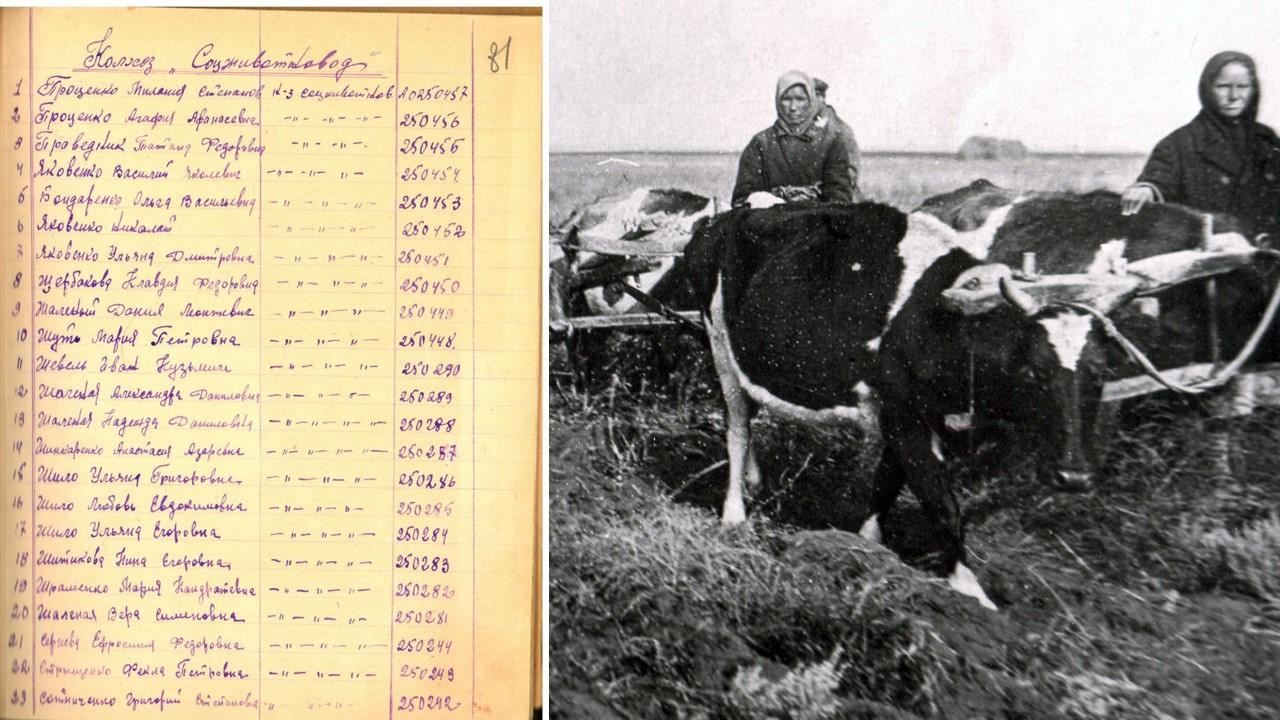 81
Колхоз „Соцживотновод"
1 Проценко Милания Степанов к-з соцживотнов. А0250457
2 Проценко Агафия Афанасевна -"- -"- -"- 250456
3 Праведник Татьяна Федоровна -"- -"- 250455
4 Яковенко Василий Яковлевич -"- -"- "- 250454
5 Бондаренко Ольга Васильевна -"- "- "- 250453
6 Яковенко Николай -"- "- "- 250452
7 Яковенко Ульяна Дмитровна -"- "- "- 250451
8 Щербакова Клавдия Федоровна -"- "- "- 250450
9 Данил -"- "- "- 250449
10 Шуть Мария Петровна -"- "- "- 250448
11 Шевель Иван Кузьмич -"- "- "- 250290
12 Александра Данилович -"- "- "- 250289
13 Надежда Даниловна -"- "- "- "- 250288
14 Шинкаренко Анастасия Азаревна -"- "- "- "- 250287
15 Шило Ульяна Григоровна -"- "- "- 250286
16 Шило Любовь Евдокимовна -"- "- "- 250285
17 Шило Ульяна Егоровна -"- "- "- 250284
18 Шитикова Нина Егоровна -"- "- "- 250283
19 Шраменко Мария Кондратевна -"- "- "- 250282
20 Вера Семеновна -"- "- "- 250281
21 Ефросиния Федоровна -"- "- "- 250244
22 Фекла Петровна -"- "- "- 250243
23 Сотниченко Григорий Степанова -"- "- "- 250242